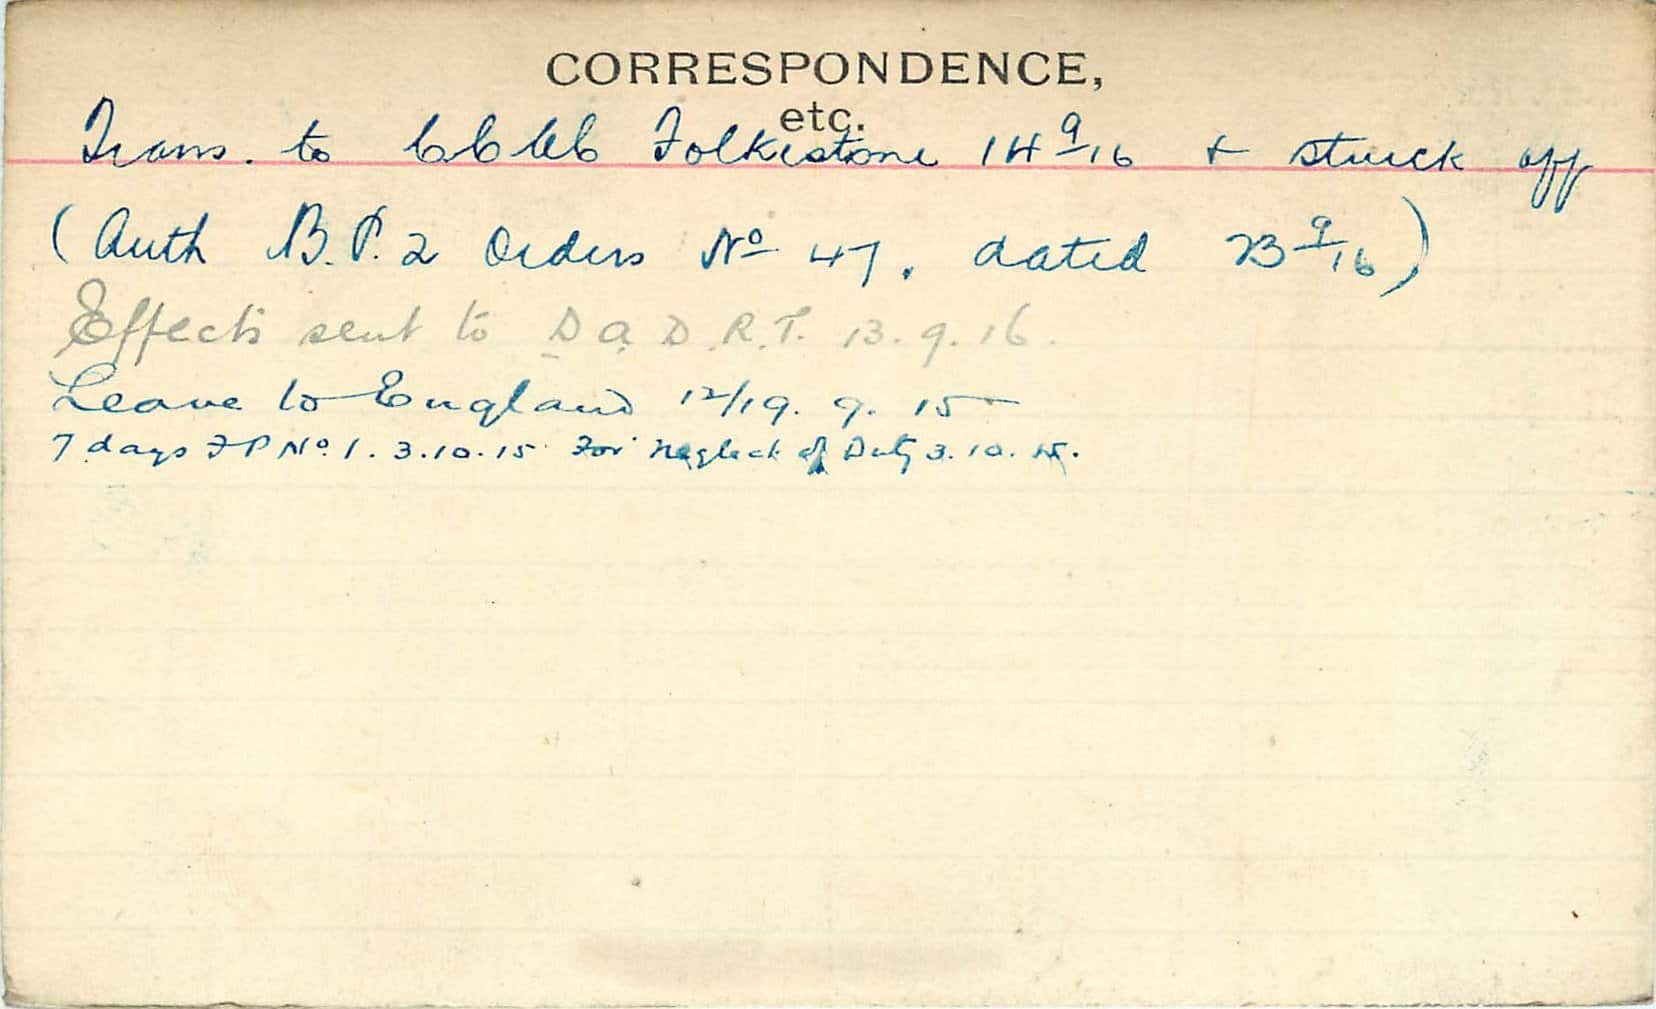 CORRESPONDENCE,
etc.
Trans. to CCAC Folkestone 14 9/16 + struck off
(Auth B.P.2 Orders No 47. dated 23 9/16)
Effects sent to D A D.R.T. 13.9.16.
Leave to England 12/19. 9. 15
7 days F P No. 1. 3.10.15 For Neglect of Duty 3.10.15.